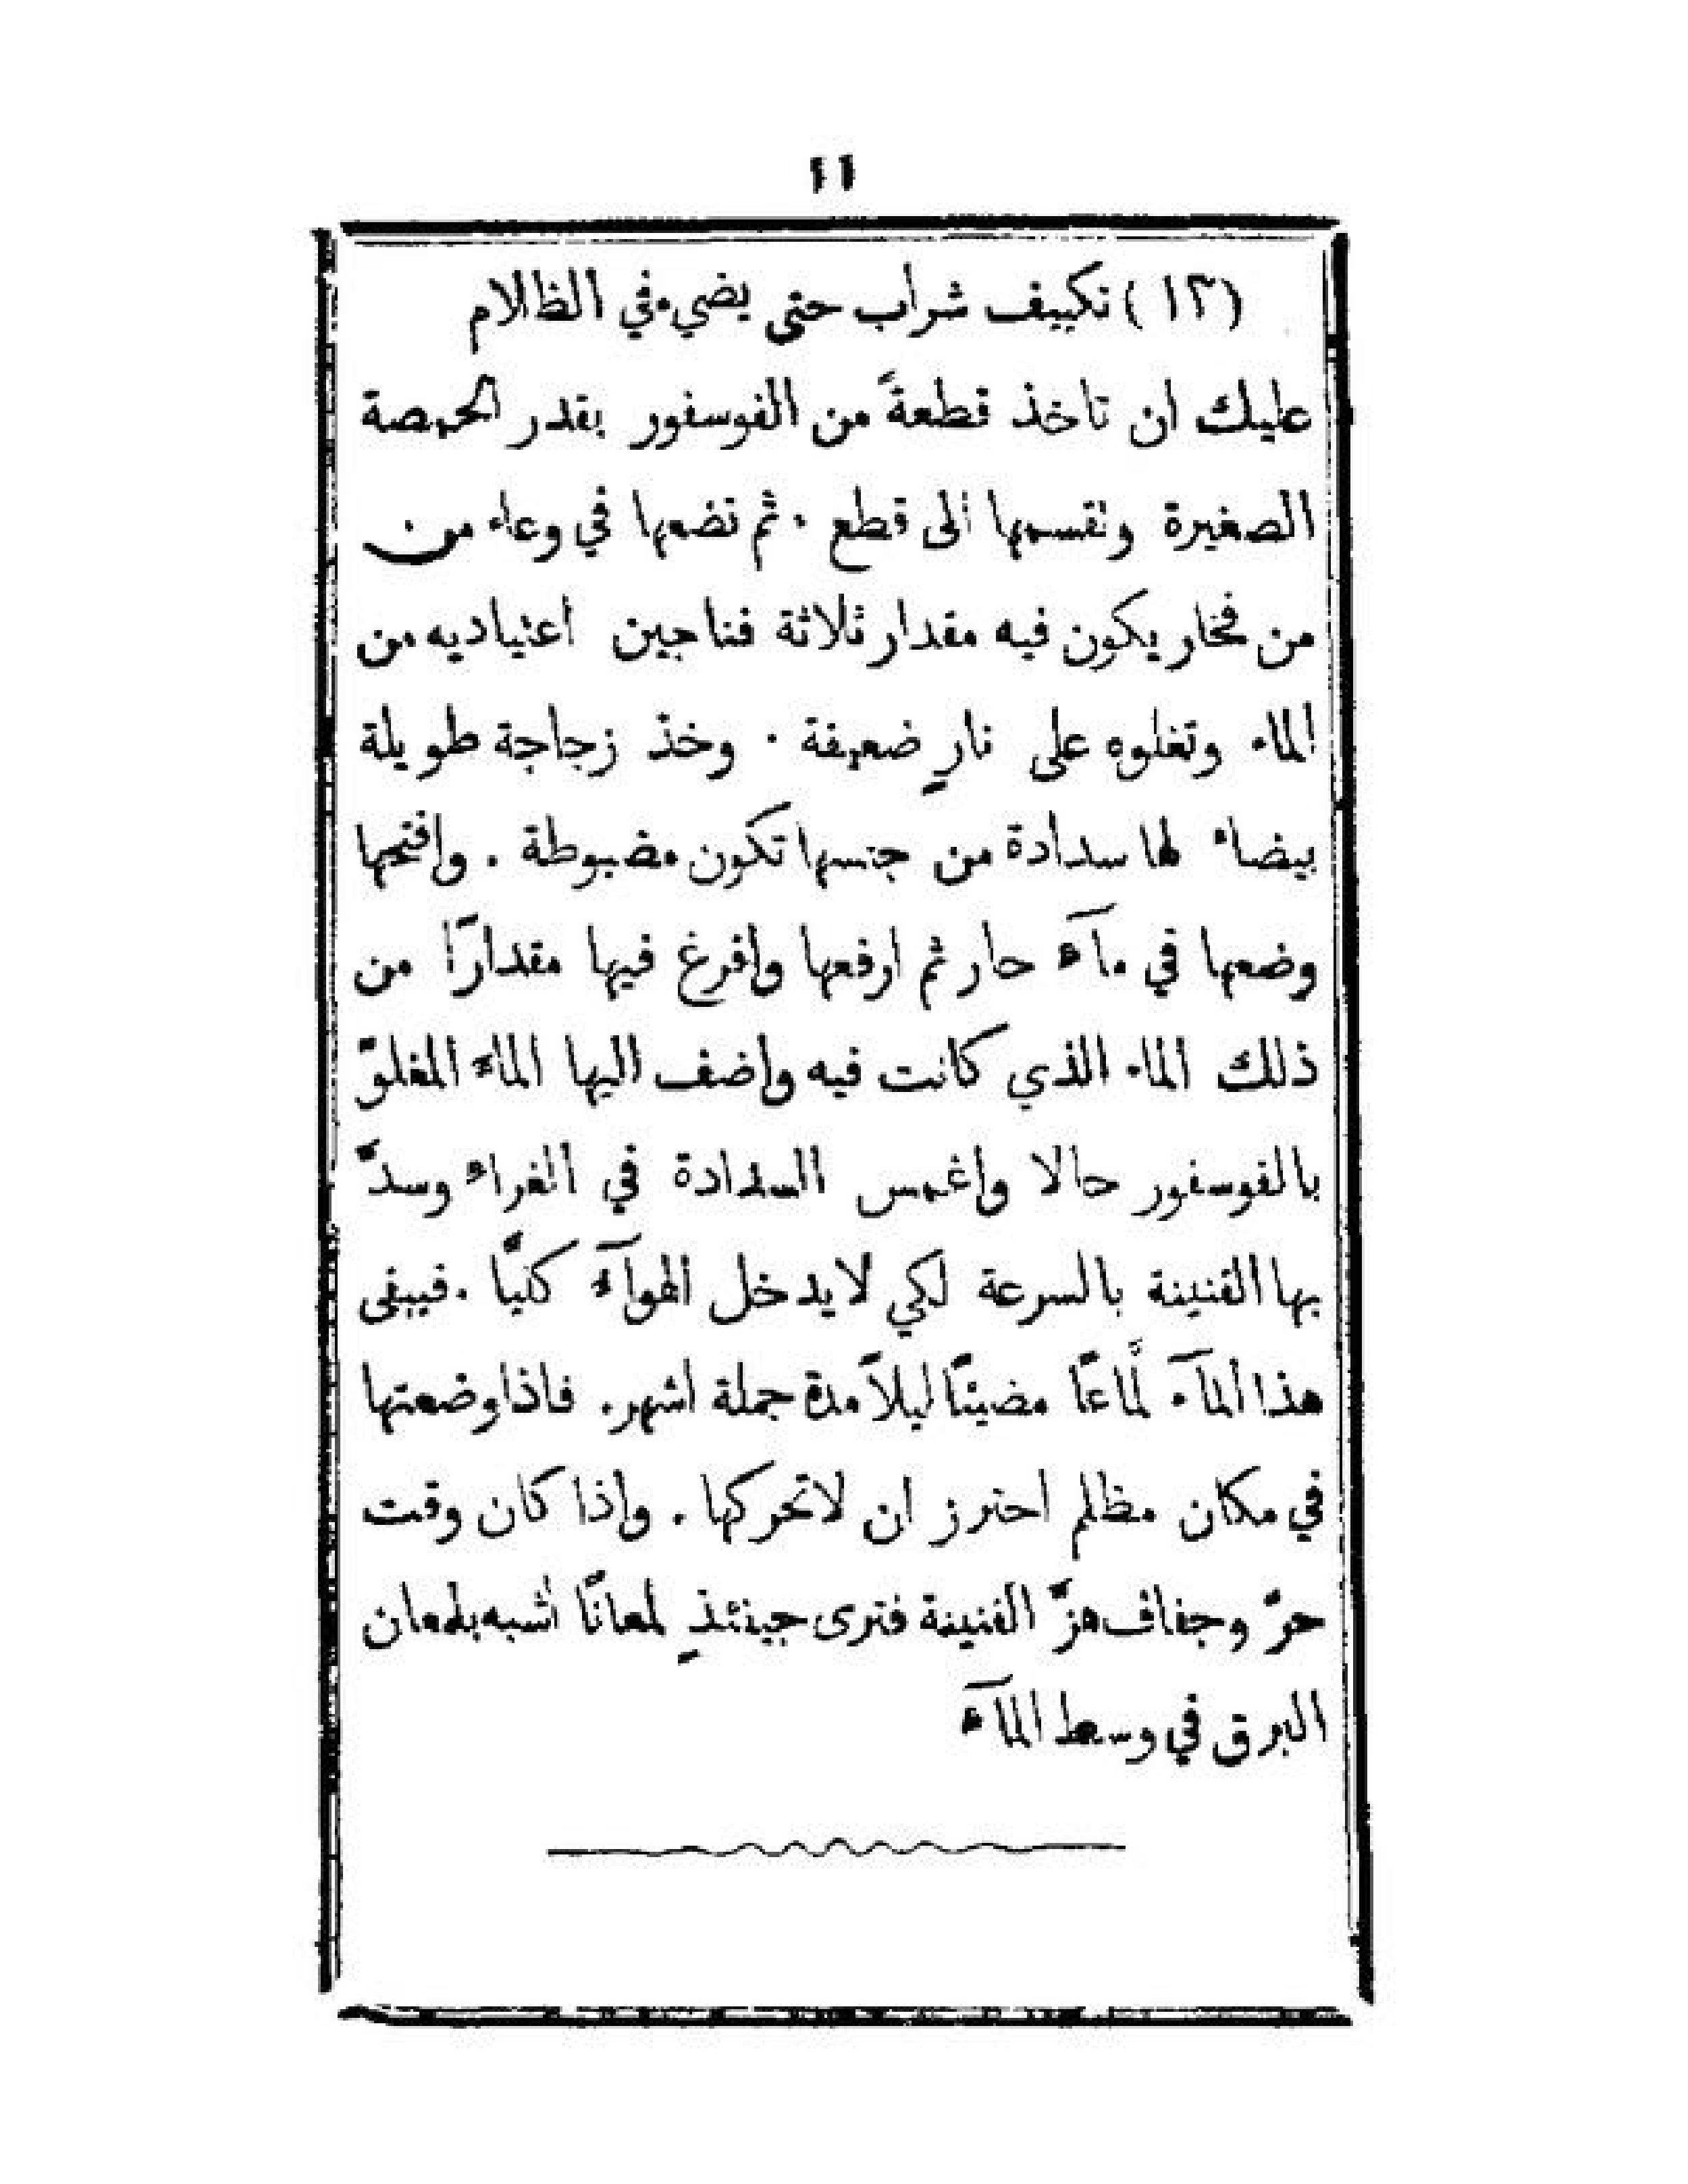 ١١
(١٣) تكييف شراب حتى يضيء في الظلام
عليك ان تاخذ قطعةً من الفوسفور بقدر الحمصة
الصغيرة ونقسمها الى قطع ٠ ثم تضعها في وعاء من
من فخار يكون فيه مقدار ثلاثة فناجين اعنياديه من
الماء وتغلوه على نارٍ ضعيفة ٠ وخذ زجاجة طويلة
بيضاء لها سدادة من جنسها تكون مضبوطة . وافتحها
وضعها في مآء حار ثم ارفعها وافرغ فيها مقدارًا من
ذلك الماء الذي كانت فيه واضف اليها الماء المغلوّ
بالفوسفور حالا واغمس السدادة في الغراء وسدَّ
بها القنينة بالسرعة لكي لا يدخل الهوآء كليًّا . فيبقى
هذا المآء لمَّاعًا مضيئًا ليلاً مدة جملة اشهر . فاذا وضعتها
في مكان مظلم احترز ان لا تحركها . واذا كان وقت
حرّ وجفاف هزّ القنينة فترى حينئذٍ لمعانًا أشبه بلمعان
البرق في وسط المآء